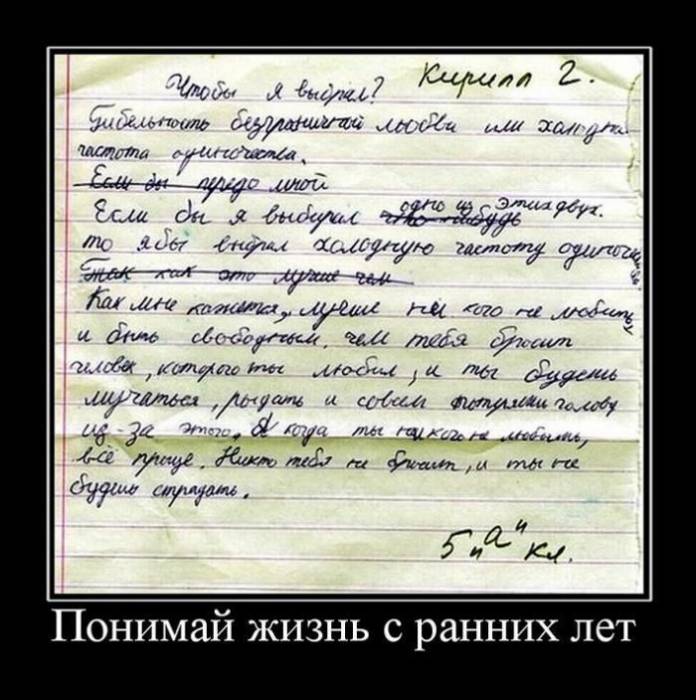 Чтобы я выбрал? Кирилл Г.
Гибельность безграничной любви или холодная
частота одиночества.
Если бы передо мной
Если бы я выбирал что-нибудь одно из этих двух.
то я бы выбрал холодную частоту одиночества.
Так как это лучше чем
Как мне кажется, лучше ни кого не любить,
и быть свободным, чем тебя бросит
человек, которого ты любил, и ты будешь
мучаться, рыдать и совсем потеряеши голову
из-за этого. А когда ты ни кого не любишь,
всё проще. Никто тебя не бросит, и ты не
будешь страдать.
5 "а" кл.
Понимай жизнь с ранних лет